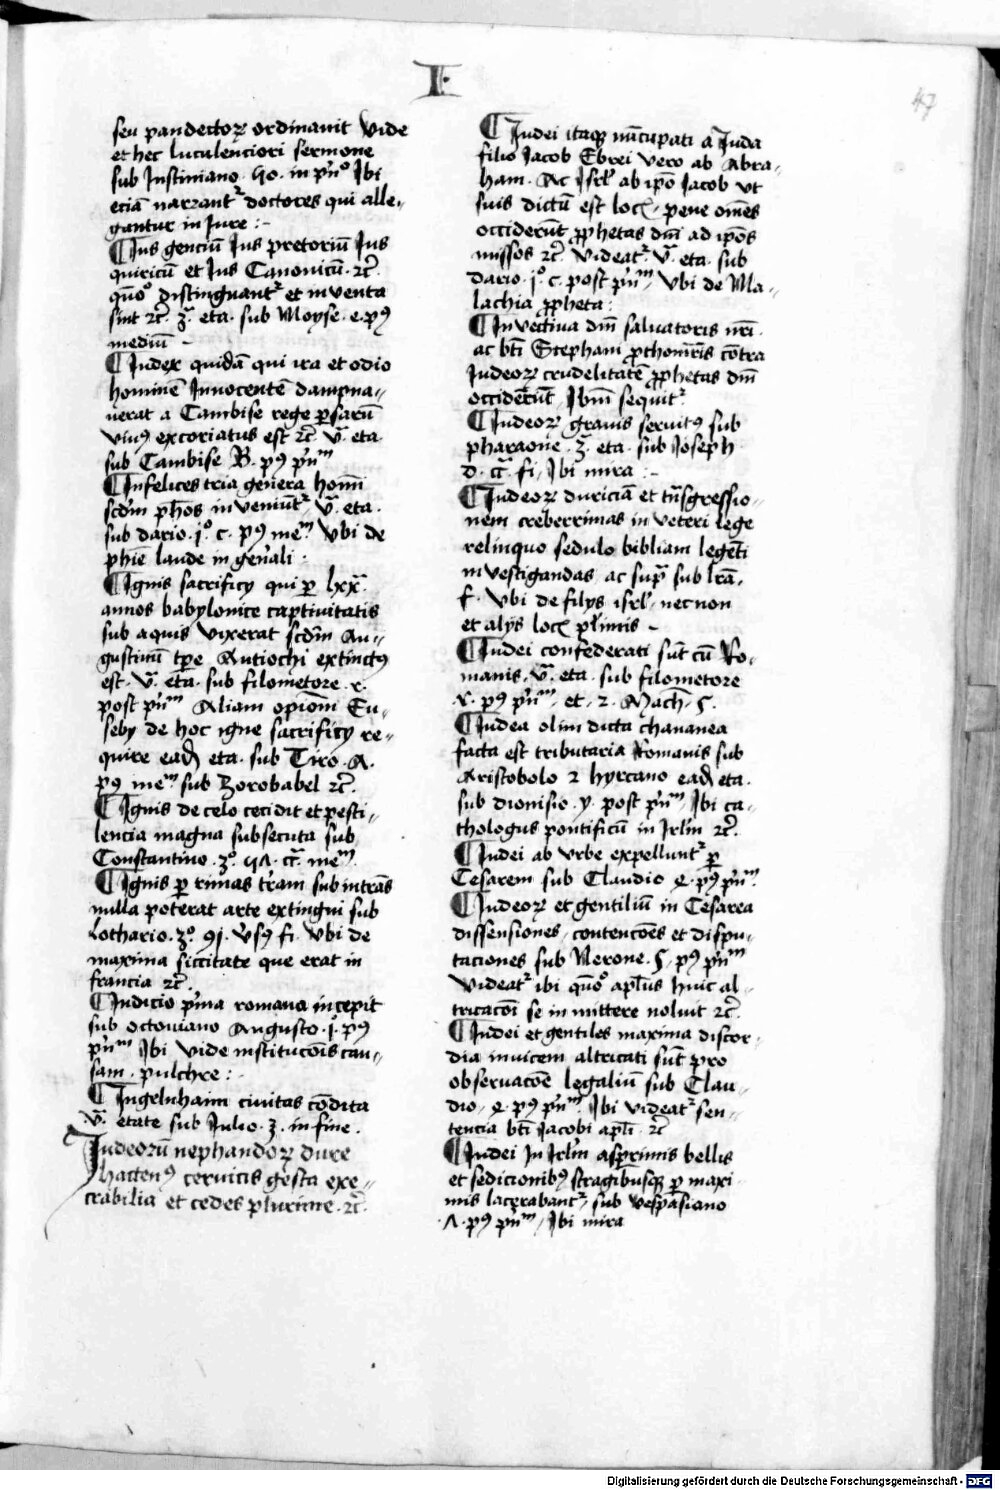 I
47
seu pandectoꝝ ordinauit Vide
et hec luculenciori sermone
sub Justiniano · 40 · in pͥnº Ibi
eciā narrantᷣ doctores qui alle„
gantur in Jure :-
¶ Jus genciū Jus pretoriū Jus
quiritū et Jus Canonicū · ⁊c̄
quōº distinguantᷣ et inventa
sint ⁊c̄ 3ᵃ eta · sub Moyse · e · pꝰ
mediū -
¶ Judex quidā qui ira et odio
hominē Innocentē dampna„
uerat a Cambise rege ꝑsarū
viuꝰ excoriatus est ⁊c̄ vᵃ eta
sub Cambise B · pꝰ pͥnᵐ
¶ Infelices tria genera homī
scdm̄ ph̄os inveniūtᷣ vᵃ eta ·
sub dario · jº · c · pꝰ meᵐ Vbi de
phīe laude in gen̄ali :
¶ Ignis sacrificij qui ꝑ lxxᵃ
annos babylonice captiuitatis
sub aquis vixerat scdm̄ Au„
gustinū tꝑe Antiochi extinctꝰ
est · vᵃ eta · sub filometore · r ·
post pͥnᵐ Aliam opionē Eu„
sebij de hoc igne sacrificij re„
quire eadē eta · sub Tiro · A ·
pꝰ meᵐ sub Zorobabel ⁊c̄
¶ Ignis de celo cecidit et pesti„
lencia magna subsecuta sub
Constantino · 3º · meᵐ
¶ Ignis ꝑ rimas t̄ram subintrās
nulla poterat arte extingui sub
Lothario · 3º · 91 · v̄sꝰ fi · Vbi de
maxima siccitate que erat in
francia ⁊c̄ ·
¶ Indicio pͥma romana incepit
sub octouiano Augusto · jº · pꝰ
pͥnᵐ Ibi vide institucōis cau„
sam · pulchre :-
¶ Ingelnhaim ciuitas cōdita
vᵃ etate sub Julio · 3 · in fine ·
Judeorū nephandoꝝ dure
hactenꝰ ceruicis gesta exe„
crabilia et cedes plurime · ⁊c̄
¶ Judei itaqꝫ nūcupati a Juda
filio Jacob Ebrei vero ab Abra„
ham · Ac Isrl̄ ab ip̄o Jacob vt
suis dictū est locꝭ · pene om̄es
occiderūt ꝓphetas dn̄i ad ip̄os
missos ⁊c̄ Videatᷣ vᵃ eta · sub
dario · jº · c · post pͥnᵐ Vbi de Ma„
lachia ꝓpheta :
¶ Invectiua dn̄i saluatoris nr̄i ·
ac bt̄i Stephani ꝓthom̄ris cōtra
Judeoꝝ crudelitatē ꝓphetas dn̄i
occiderūt Ibm̄ sequitᷣ
¶ Judeoꝝ grauis seruitꝰ sub
pharaone · 3ᵃ eta · sub Joseph
d · cᵃ fi · Ibi mira :-
¶ Judeoꝝ duriciā et tn̄sgressio„
nem creberrimas in veteri lege
relinquo sedulo bibliam legēti
investigandas ac supᵃ sub lrā,
f · Vbi de filijs isrl̄ · necnon
et alijs locꝭ pl̄imis -
¶ Judei confederati sūt cū Ro„
manis · vᵃ eta · sub filometore
r · pꝰ pͥnᵐ et · 2 · Mach̄ · 5 ·
¶ Judea olim dicta chananea
facta est tributaria Romanis sub
Aristobolo ⁊ hyrcano eadē eta ·
sub dionisio · y · post pͥnᵐ Ibi ca„
thologus pontificū in Jrl̄m ⁊c̄
¶ Judei ab vrbe expelluntᷣ ꝑ
Cesarem sub Claudio e · pꝰ pͥnᵐ
¶ Judeoꝝ et gentiliū in Cesarea
dissensiones · contencōes et dispu„
taciones sub Nerone · 5 · pꝰ pͥnᵐ
Videatᷣ ibi quōº apl̄us huic al„
tricacōi se inmittere noluit ⁊c̄
¶ Judei et gentiles maxima discor„
dia invicem altricati sūt pro
obseruacōe legaliū sub Clau„
dio · e · pꝰ pͥnᵐ Ibi videatᷣ sen„
tencia bt̄i Jacobi apl̄i ⁊c̄
¶ Judei In Jrl̄m asꝑrimis bellis
et sedicionibꝰ stragibusqꝫ ꝑ maxi„
mis lacerabantᷣ sub vespasiano
· A · pꝰ pͥnᵐ Ibi mira
Digitalisierung gefördert durch die Deutsche Forschungsgemeinschaft - DFG